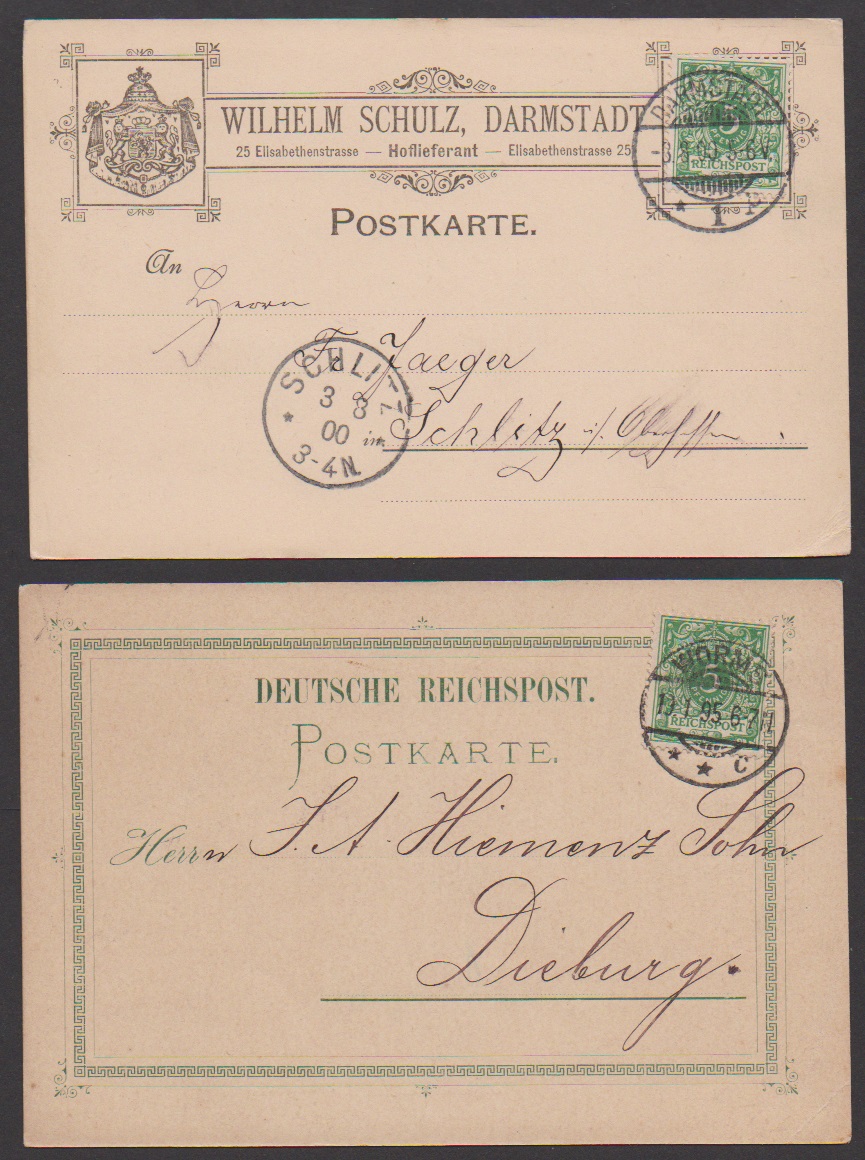 WILHELM SCHULZ, DARMSTADT
25 Elisabethenstrasse — Hoflieferant — Elisabethenstrasse 25
DARMSTADT
5
REICHSPOST
-3.8.00 5-6 V
* 1 P
POSTKARTE.
An
Herrn
Fr. Jaeger
SCHLITZ
3 8
00
3-4N.
*
in Schlitz i/. Oberhessen
WORMS
5
REICHSPOST
1.95.6-7N
* * C
DEUTSCHE REICHSPOST.
POSTKARTE.
Herrn J. A. Hiemenz Sohn
Dieburg.